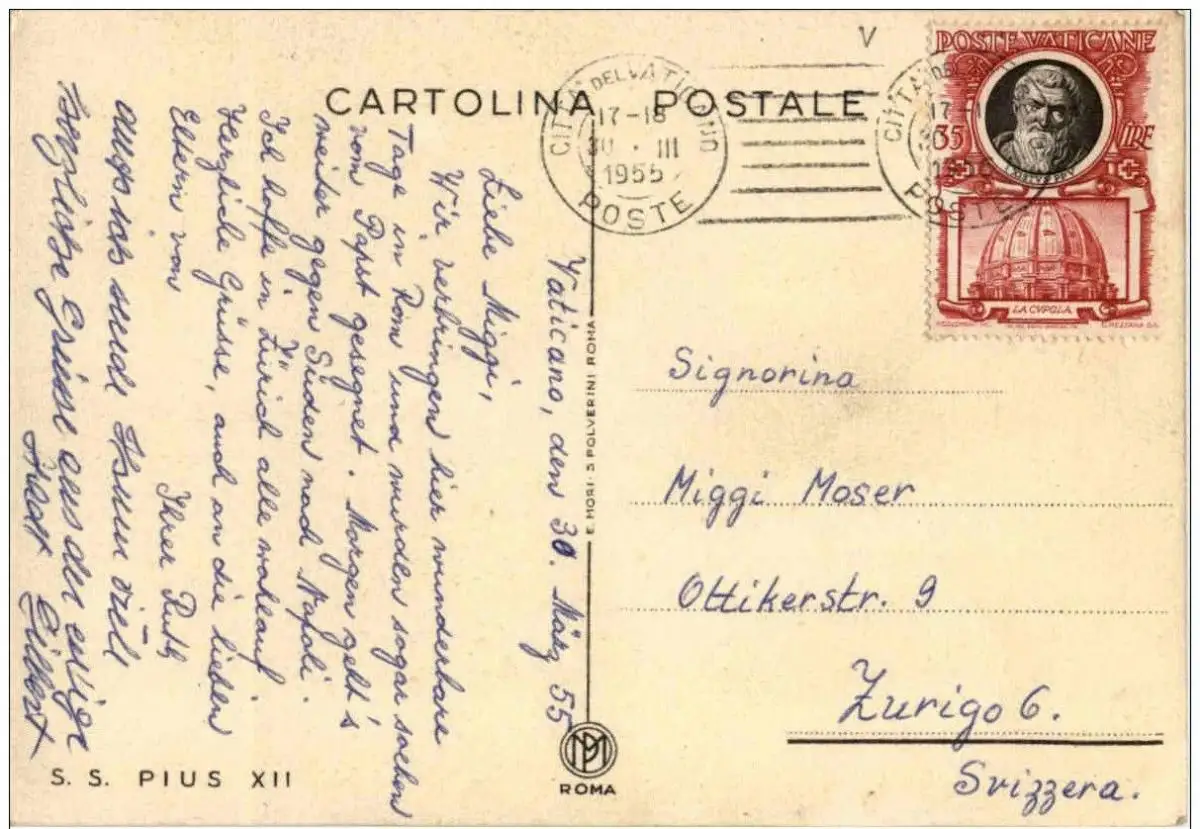 CARTOLINA POSTALE
CITTA' DEL VATICANO
17-18
30 · III
1955
POSTE
V
POSTE VATICANE
35 LIRE
LA CVPOLA
Vaticano, den 30. März 55
Liebe Miggi,
Wir verbringen hier wunderbare
Tage in Rom und wurden sogar soeben
vom Papst gesegnet. Morgen geht's
weiter gegen Süden nach Napoli.
Ich hoffe in Zürich alle wohlauf.
Herzliche Grüsse, auch an die lieben
Eltern von
Ihrer Ruth
herzliche Grüsse aus der
E. MORI: S. POLVERINI ROMA
ROMA
S. S. PIUS XII
Signorina
Miggi Moser
Ottikerstr. 9
Zurigo 6.
Svizzera.